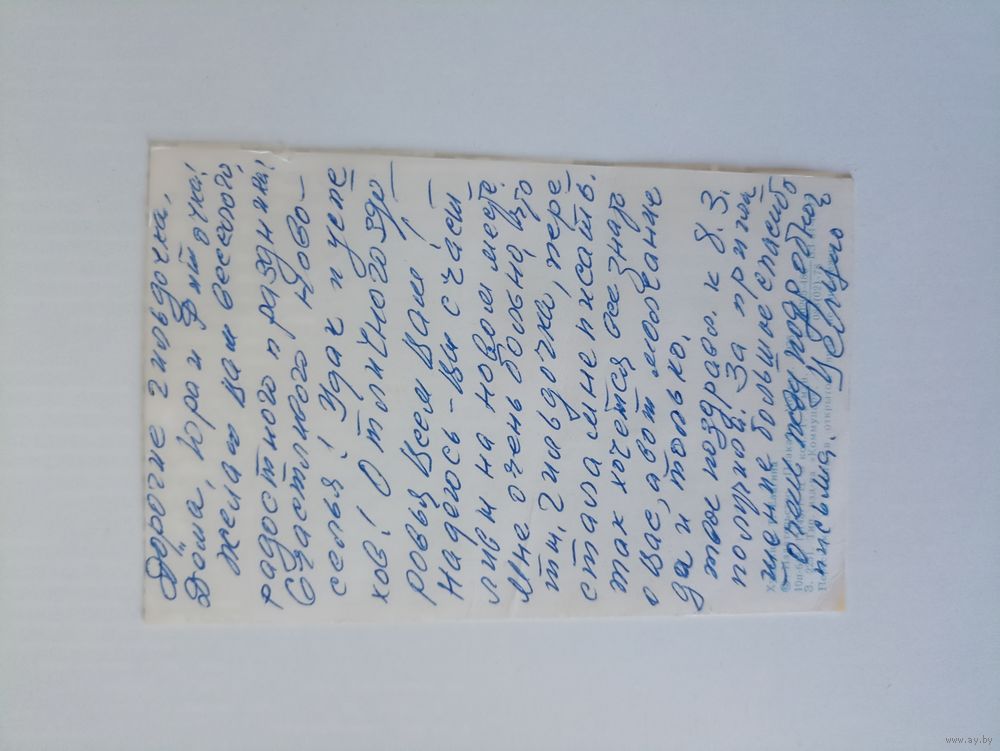 Дорогие Эльвочка,
Дома, Юра и очка!
желаю Вам веселого,
радостного праздника!
Счастливого Ново-
селья! Удач и успе
хов! Отличного здо
ровья Всем Вам!
Надеюсь - Вы счаст
ливы на новом месте.
Мне очень больно, что
ты, Эльвочка, пере
стала мне писать.
так хочется все знать
о Вас, а вот молчание
да и только.
твое поздравл. к 8.3.
получила. За пригла
шение большое спасибо
Очень жду подробного
письма. Целую
www.ay.by